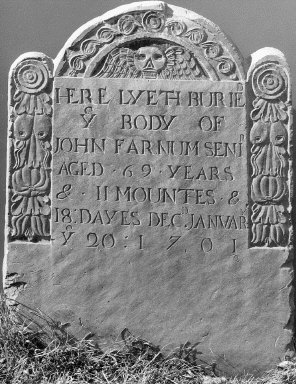 HERE LYETH BURIED
Yᵉ BODY OF
JOHN FARNUM SENIʳ
AGED · 69 · YEARS
& · 11 MOUNTES · &
18: DAYES DECᴰ JANVARʸ
Yᵉ 20 : 1 7 0 1